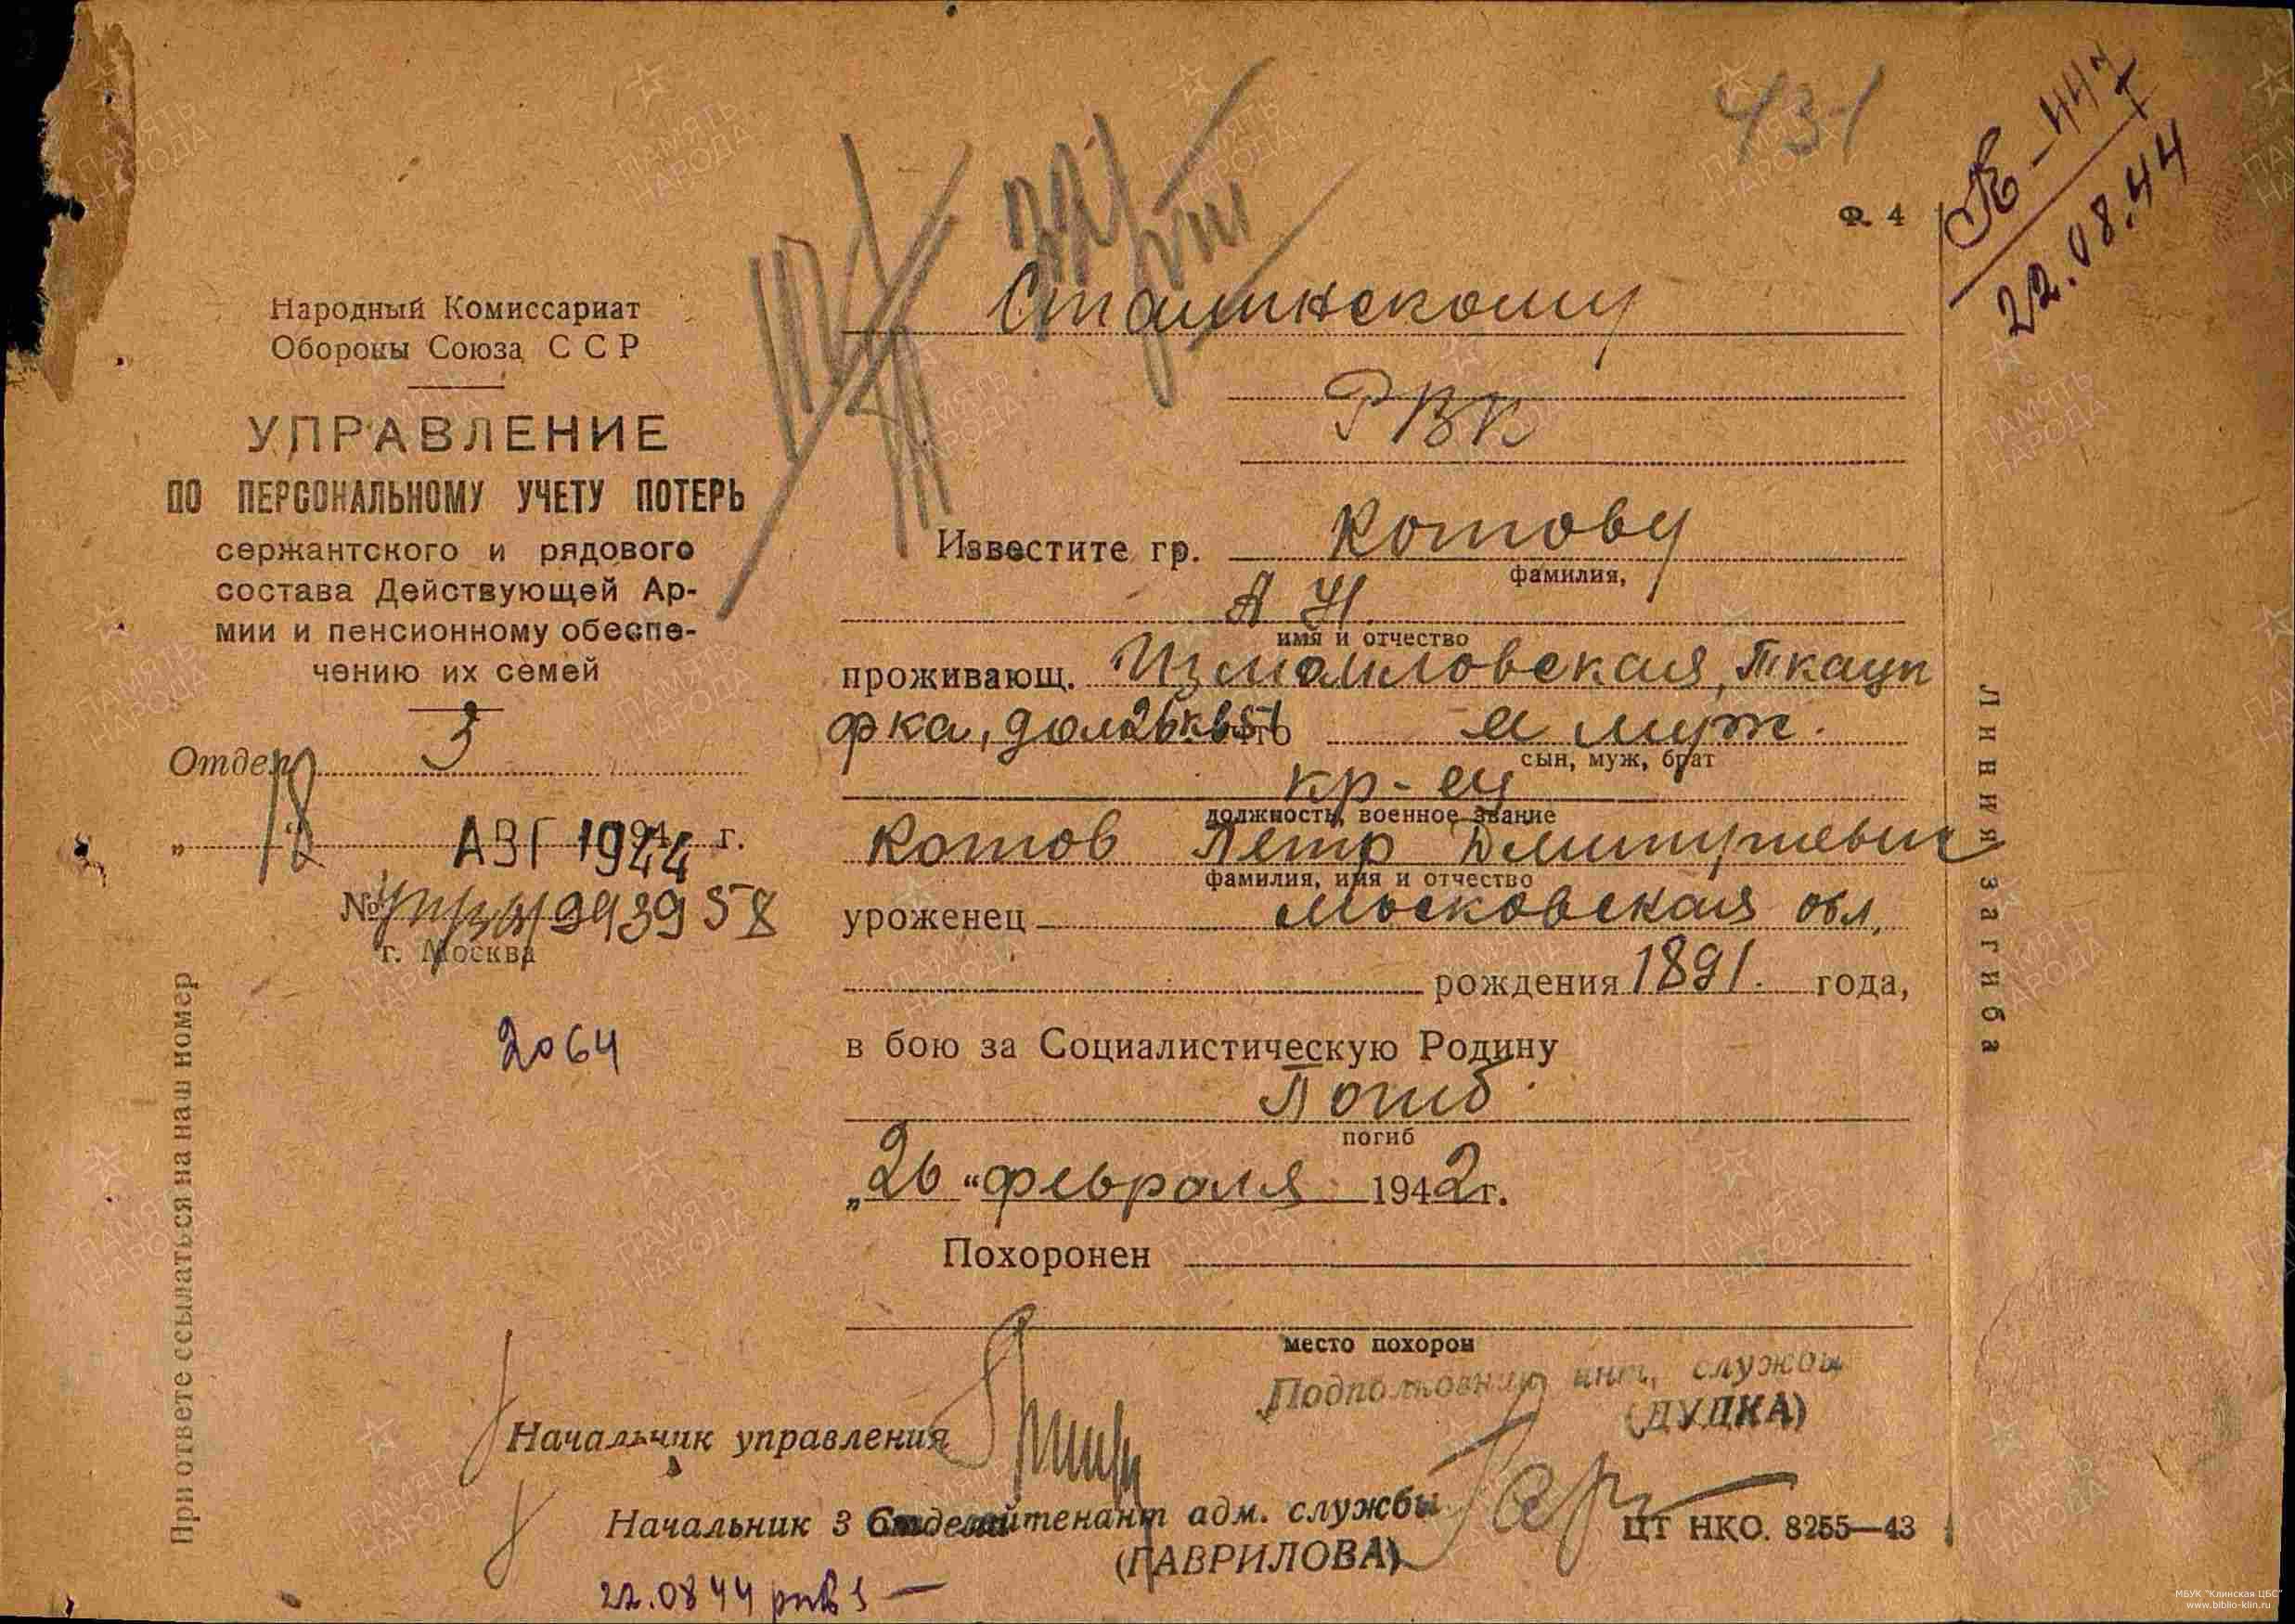 431
22.08.44
Ф. 4
Народный Комиссариат
Обороны Союза ССР
УПРАВЛЕНИЕ
ПО ПЕРСОНАЛЬНОМУ УЧЕТУ ПОТЕРЬ
сержантского и рядового
состава Действующей Ар-
мии и пенсионному обеспе-
чению их семей
Отдел 3
„18“ АВГ 1944 г.
№ 993958
г. Москва
2064
При ответе ссылаться на наш номер
Сталинскому
РВК
Известите гр. Котову
фамилия,
А Н.
имя и отчество
проживающ. Измаиловская, Ткацк
ф ка, дом 26 кв 51 что а муж.
сын, муж, брат
кр-ец
должность, военное звание
Котов Петр Дмитриевич
фамилия, имя и отчество
уроженец Московская обл,
рождения 1891. года,
в бою за Социалистическую Родину
Погиб
погиб
„26“ февраля 1942 г.
Похоронен
место похорон
Подполковник инт. службы
(ДУДКА)
Начальник управления
Начальник 3 отдела
Ст. лейтенант адм. службы
(ГАВРИЛОВА)
ЦТ НКО. 8255—43
22.08 44
Линия загиба
ПАМЯТЬ НАРОДА
МБУК "Клинская ЦБС"
www.biblio-klin.ru